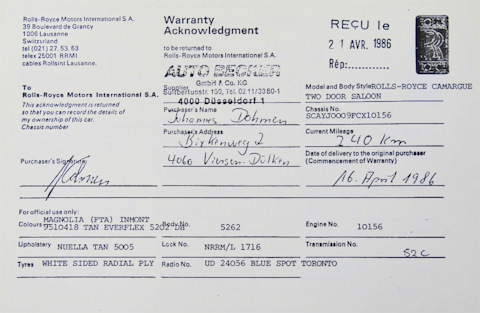 Rolls-Royce Motors International S.A.
39 Boulevard de Grancy
1006 Lausanne
Switzerland
tel (021) 27. 53. 63
telex 25001 RRMI
cables Rollsint Lausanne.
Warranty
Acknowledgment
to be returned to
Rolls-Royce Motors International S.A.
REÇU le
21 AVR. 1986
Rép:
To
Rolls-Royce Motors International S.A.
This acknowledgment is returned
so that you can record the details of
my ownership of this car.
Chassis number
AUTO BECKER
GmbH & Co. KG
Supplier
Suitbertusstr. 150, Tel. 0211/3380-1
4000 Düsseldorf 1
Purchaser's Name
Johannes Dohmen
Purchaser's Address
Birkenweg 2
4060 Viersen-Dülken
Model and Body Style ROLLS-ROYCE CAMARGUE
TWO DOOR SALOON
Chassis No.
SCAYJ0009FCX10156
Current Mileage
240 km
Date of delivery to the original purchaser
(Commencement of Warranty)
16. April 1986
Purchaser's Signature
For official use only:
MAGNOLIA (PTA) INMONT
Colours 9510418 TAN EVERFLEX 5202 DB
Body No. 5262
Engine No. 10156
Upholstery NUELLA TAN 5005
Lock No. NRRM/L 1716
Transmission No. 52C
Tyres WHITE SIDED RADIAL PLY
Radio No. UD 24056 BLUE SPOT TORONTO